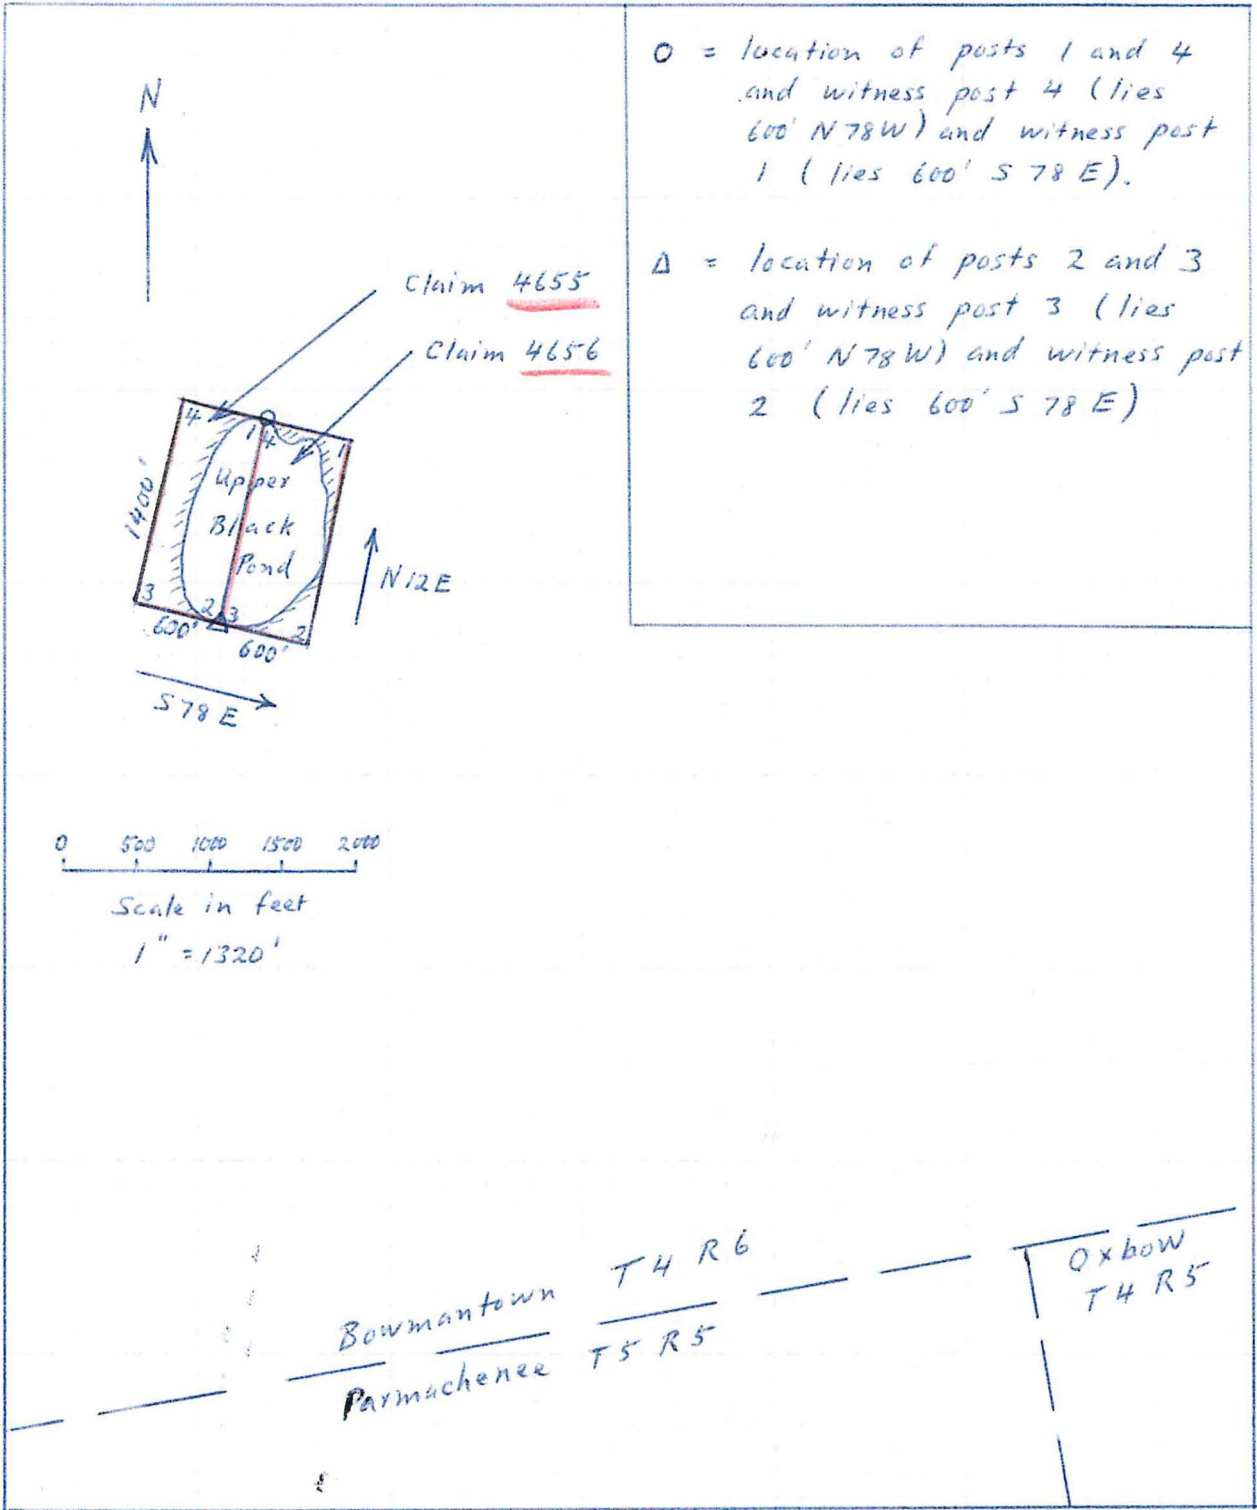 O = location of posts 1 and 4
and witness post 4 (lies
600' N78W) and witness post
1 (lies 600' S 78 E).
Δ = location of posts 2 and 3
and witness post 3 (lies
600' N78W) and witness post
2 (lies 600' S 78 E)
N
Claim 4655
Claim 4656
4
1
4
1
Upper
Black
Pond
1400'
N12E
3
2
3
2
600'
600'
S78E
0 500 1000 1500 2000
Scale in feet
1" = 1320'
Bowmantown T4 R6
Parmachenee T5 R5
Oxbow
T4 R5